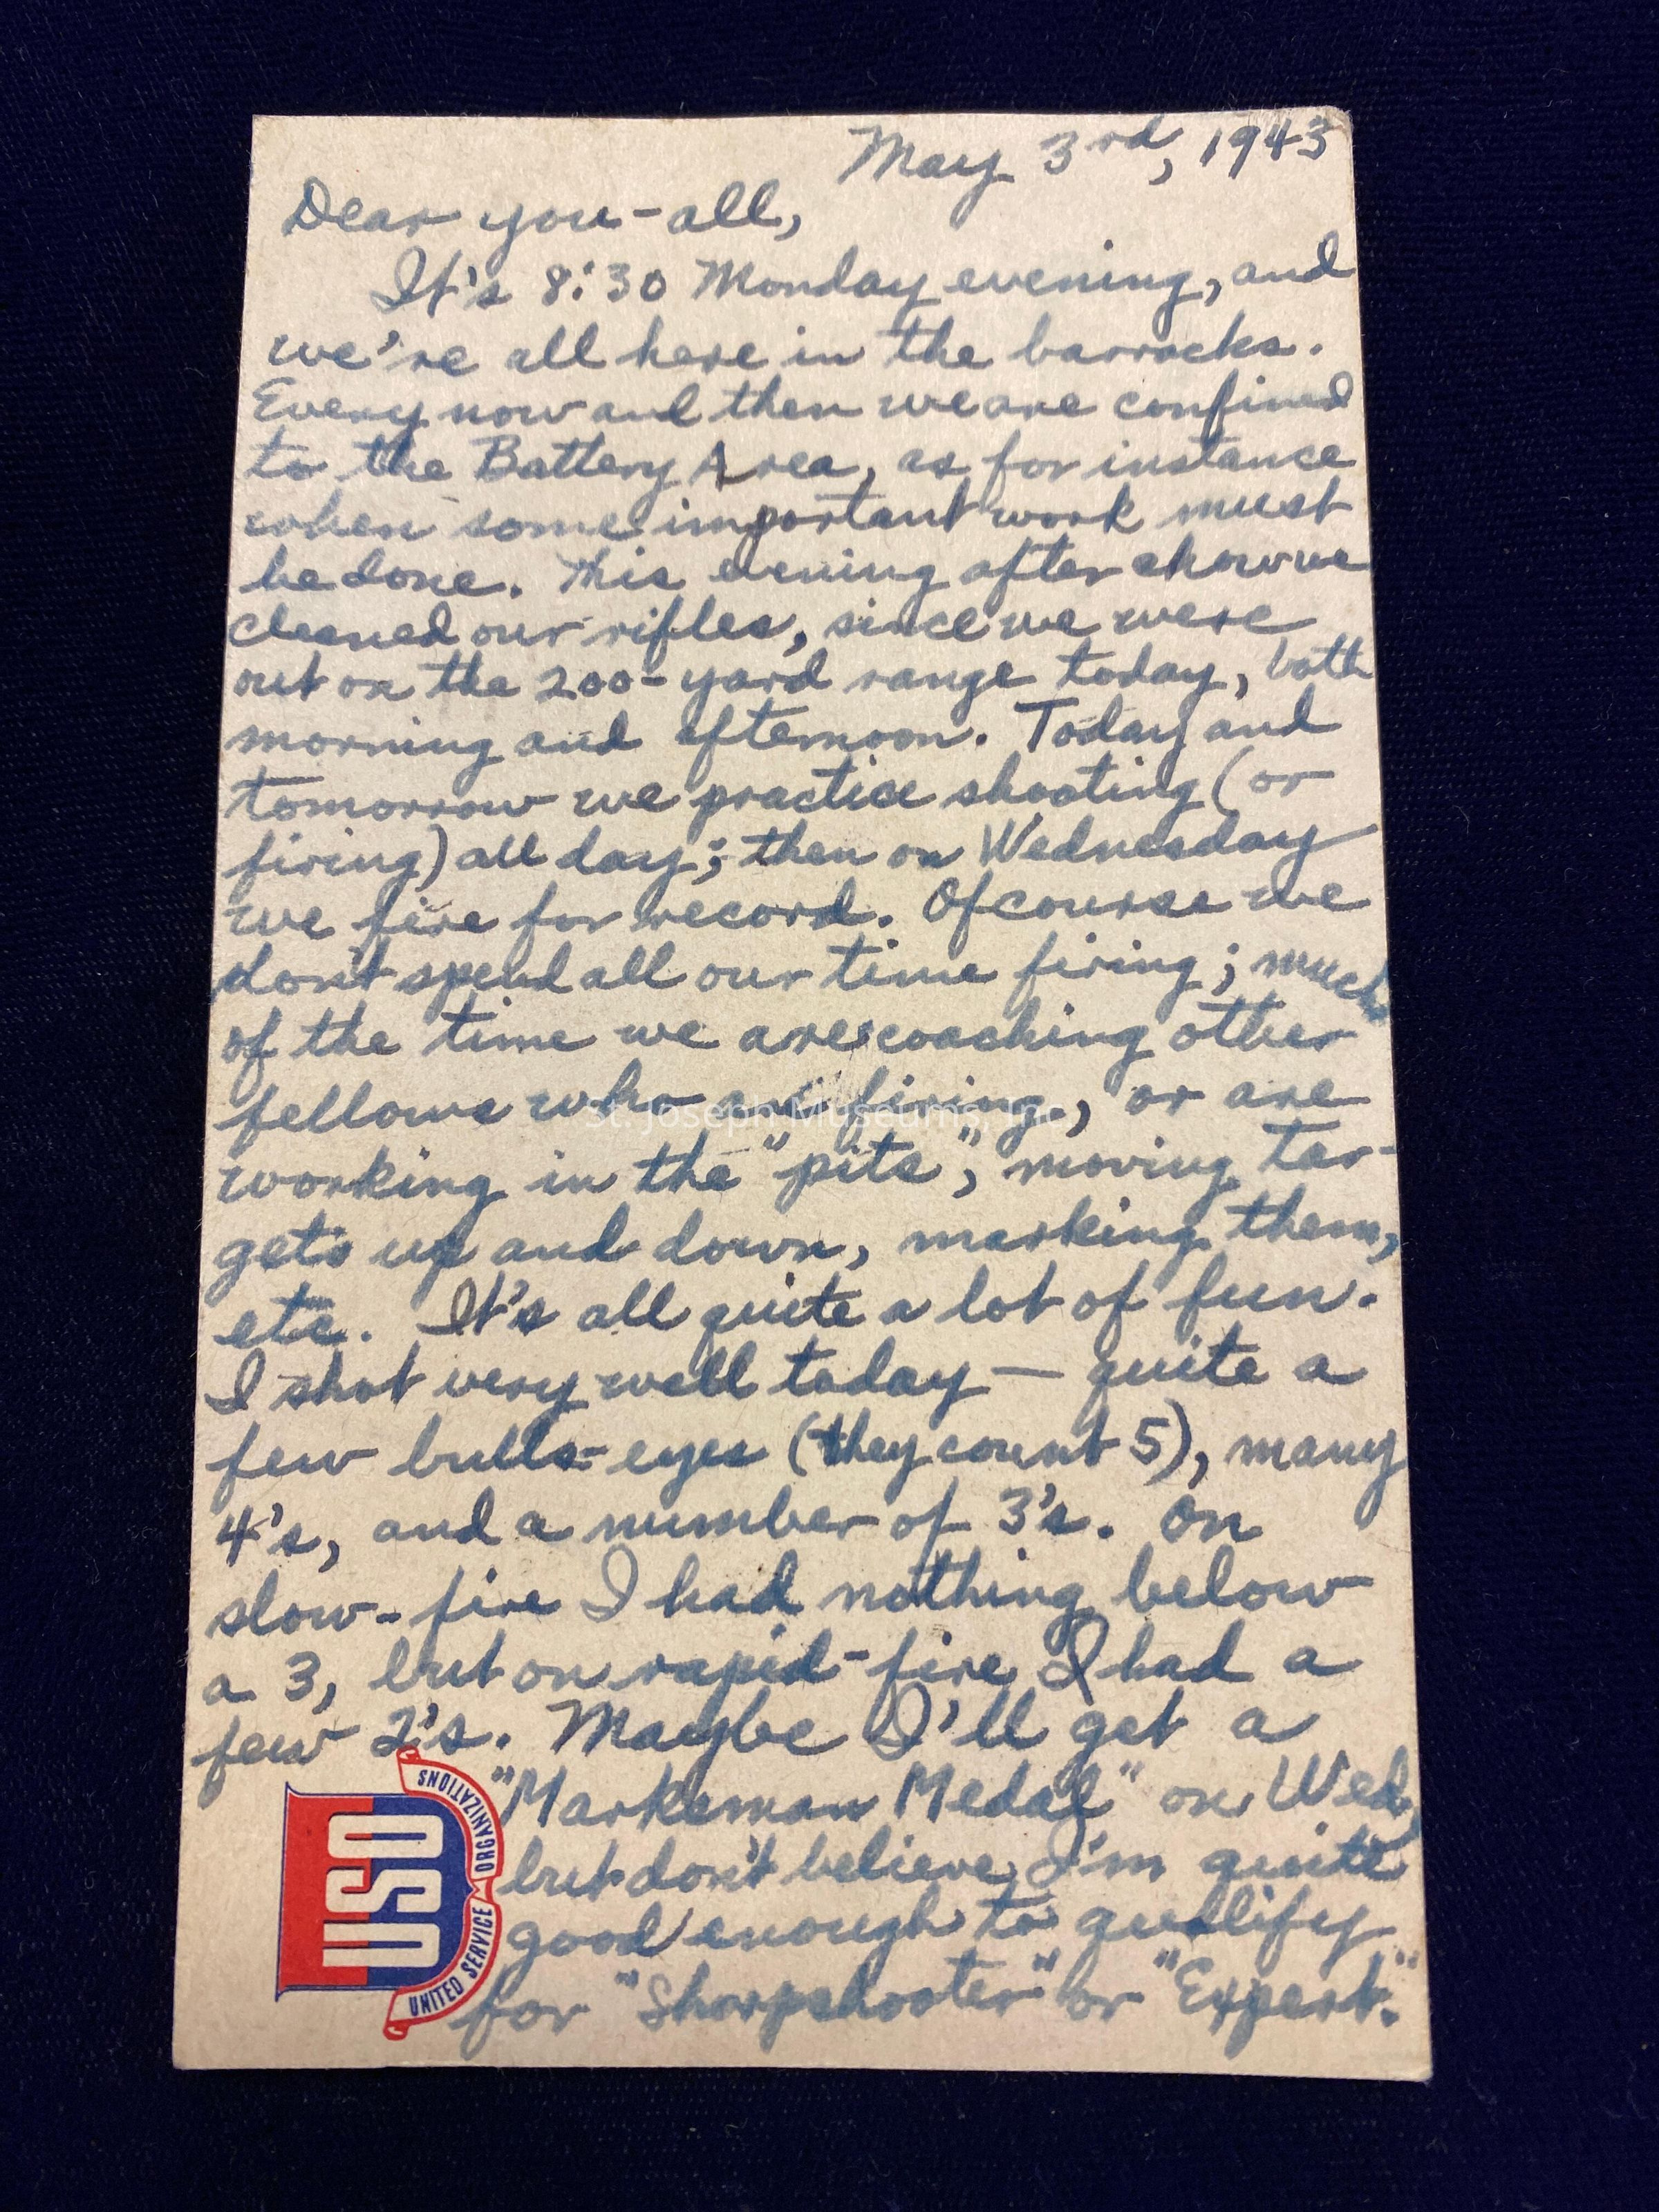 May 3rd, 1943
Dear you-all,
It's 8:30 Monday evening, and
we're all here in the barracks.
Every now and then we are confined
to the Battery Area, as for instance
when some important work must
be done. This evening after chow we
cleaned our rifles, since we were
out on the 200-yard range today, both
morning and afternoon. Today and
tomorrow we practice shooting (or
firing) all day; then on Wednesday
we fire for record. Of course we
don't spend all our time firing; much
of the time we are coaching other
fellows who are firing, or are
St. Joseph Museums, Inc.
working in the "pits", moving tar-
gets up and down, marking them,
etc. It's all quite a lot of fun.
I shot very well today — quite a
few bulls-eyes (they count 5), many
4's, and a number of 3's. On
slow-fire I had nothing below
a 3, but on rapid-fire I had a
few 2's. Maybe I'll get a
"Marksman Medal" on Wed,
but don't believe I'm quite
good enough to qualify
for "Sharpshooter" or "Expert."
USO
UNITED SERVICE ORGANIZATIONS